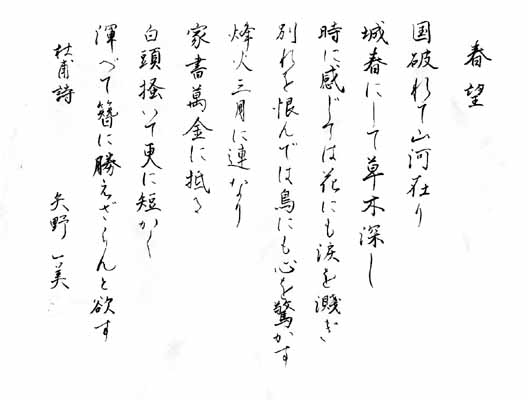 春望
国破れて山河在り
城春にして草木深し
時に感じては花にも涙を濺ぎ
別れを恨んでは鳥にも心を驚かす
烽火三月に連なり
家書萬金に抵る
白頭掻いて更に短かく
渾べて簪に勝えざらんと欲す
杜甫詩
矢野 美